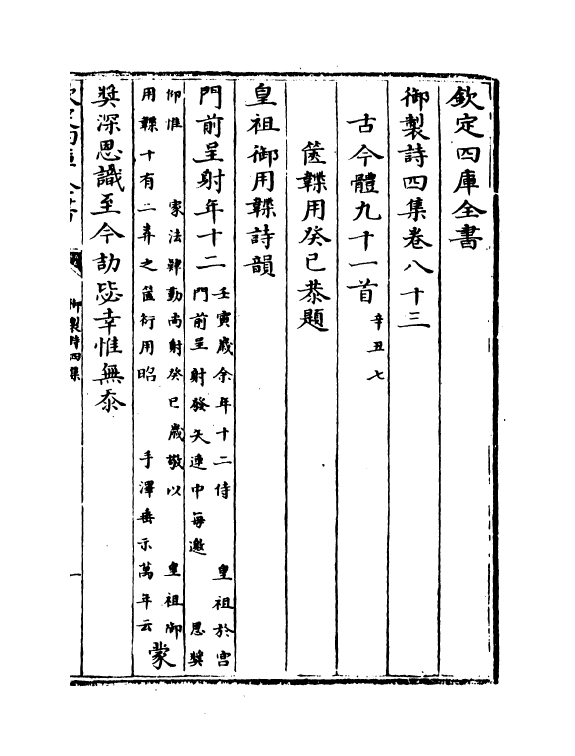 欽定四庫全書
御製詩四集卷八十三
古今體九十一首辛丑七
篋韘用癸巳恭題
皇祖御用韘詩韻
門前呈射年十二壬寅歲余年十二侍 皇祖於宮
門前呈射發矢連中每邀 恩奬
仰惟 家法肄勤尚射癸巳歲敬以 皇祖御
用韘十有二弆之篋衍用昭 手澤垂示萬年云
蒙
奬深恩識至今劼毖幸惟無忝
御製詩四集
一